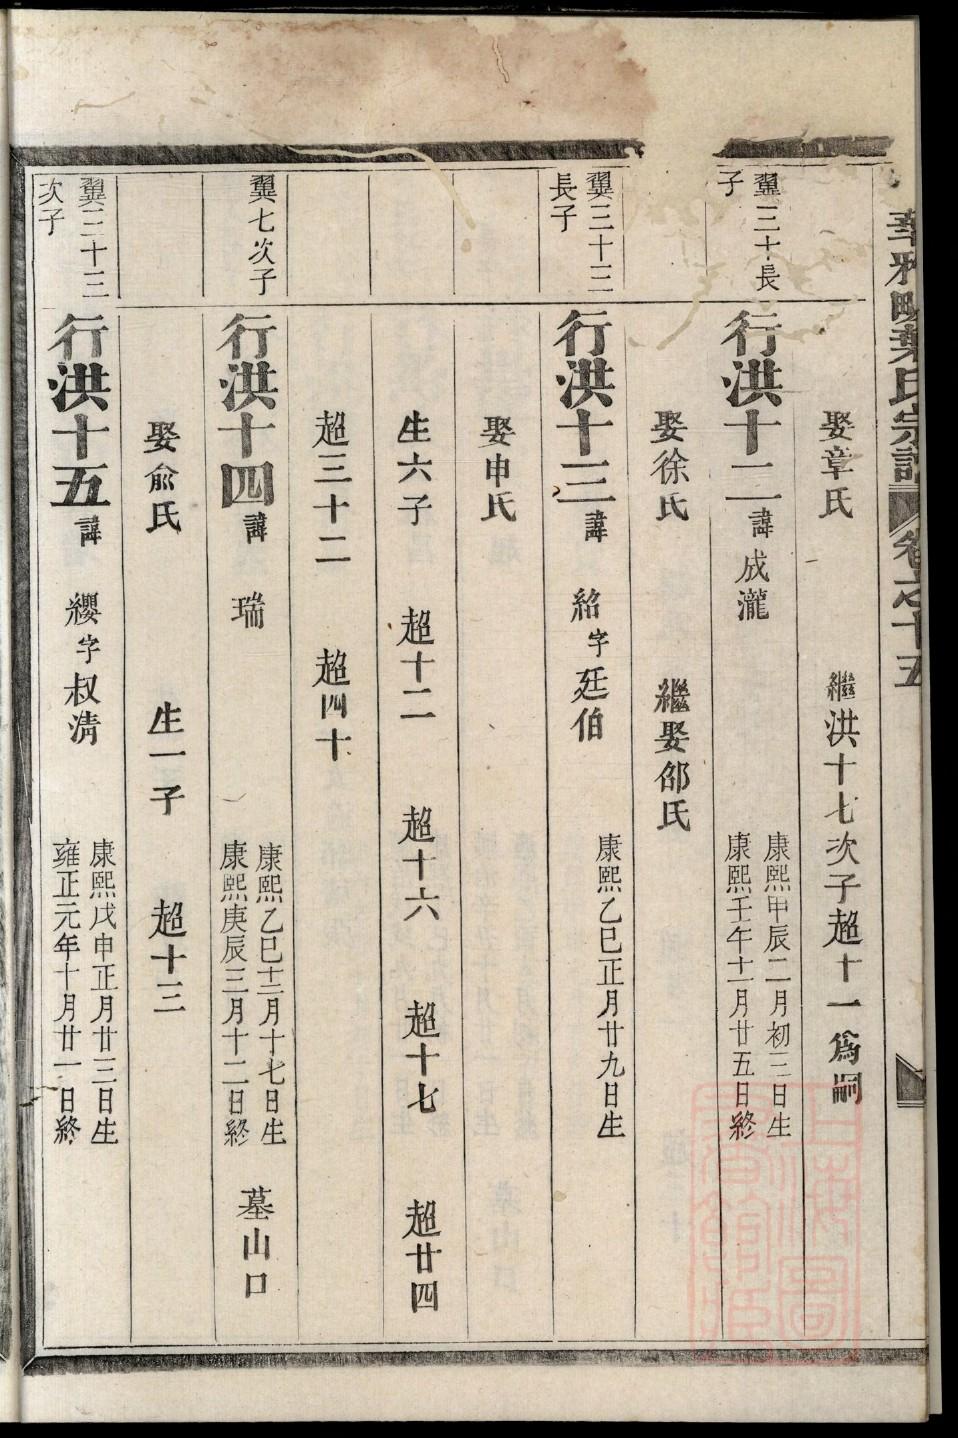 華雅畈葉氏宗譜 卷之十五
娶章氏 繼洪十七次子超十一為嗣
翼三十長子
行洪十二 諱成瀧 康熙甲辰二月初三日生
康熙壬午十一月廿五日終
娶徐氏 繼娶邵氏
翼三十三長子
行洪十三 諱紹字廷伯 康熙乙巳正月廿九日生
娶申氏
生六子 超十二 超十六 超十七 超廿四
超三十二 超四十
翼七次子
行洪十四 諱瑞 康熙乙巳十二月十七日生
康熙庚辰三月十二日終 墓山口
娶俞氏 生一子 超十三
翼三十三次子
行洪十五 諱纓字叔清 康熙戊申正月廿三日生
雍正元年十月廿一日終